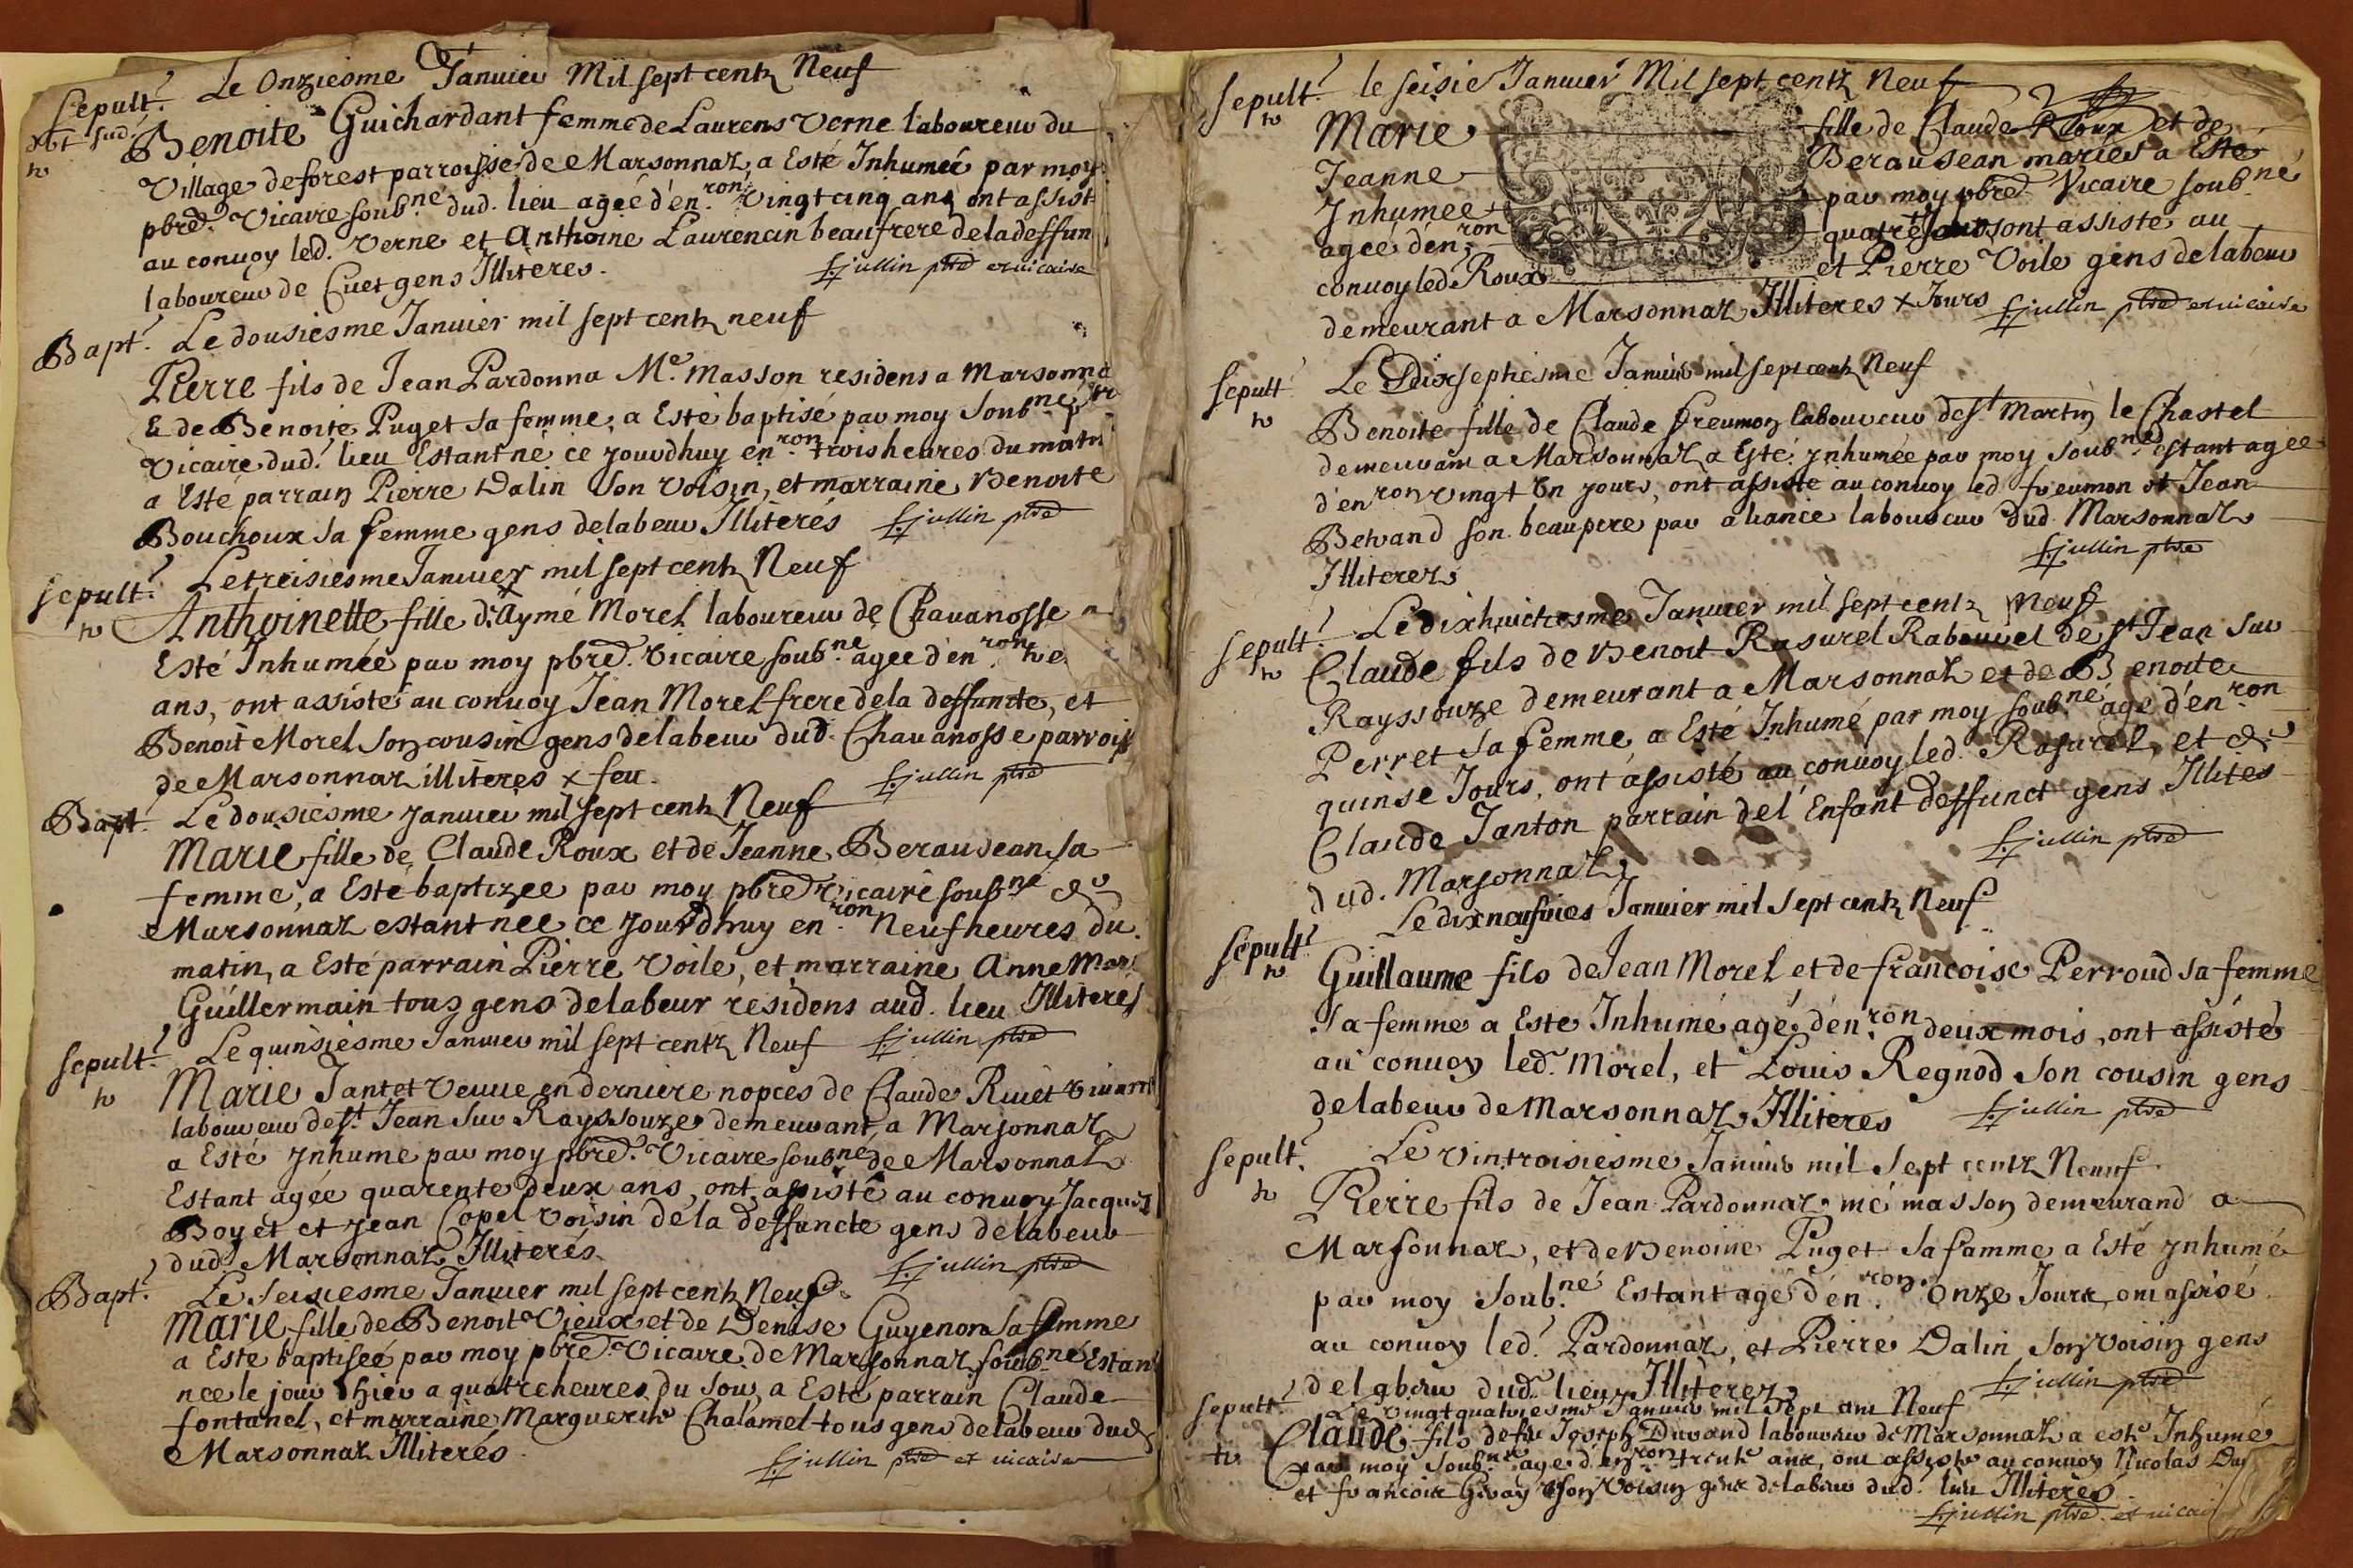 Sepult.e Le Onziesme Januier Mil sept centz Neuf
Benoite Guichardant femme de Laurens Verne laboureur du
Village de forest parroisse de Marsonnaz, a Esté Inhumeé par moy
pbre. Vicaire soub.né dud. lieu agée d'en.ron Vingt cinq ans ont assist
au conuoy led. Verne et Anthoine Laurencin beaufrere de la deffun
laboureur de Cuet gens Illiteres. F. jullin ptre et uicaire
Bapt.e Le dousiesme Januier mil sept centz neuf
Pierre fils de Jean Pardonna M.e masson residens a Marsonna
& de Benoite Puget sa femme, a Esté baptisé par moy soub.né
Vicaire dud. lieu Estant né ce jourdhuy en.ron trois heures du matn
a Esté parrain Pierre Dalin son voisin, et marraine Benoite
Bouchoux sa femme gens de labeur Illiterés F. jullin ptre
Sepult.e Le treisiesme Januier mil sept centz Neuf
h Anthoinette fille d'Aymé Morel laboureur de Chauanosse a
Esté Inhumée par moy pbre. Vicaire soub.ne agee d'en.ron
ans, ont assisté au conuoy Jean Morel frere de la deffuncte, et
Benoit Morel son cousin gens de labeur dud. Chauanosse parrois
de Marsonnaz illiteres x feu. F. jullin ptre
Bapt. Le dousiesme januier mil sept centz Neuf
Marie fille de Claude Roux et de Jeanne Beraudean sa
femme, a Esté baptizee par moy pbre Vicaire soub.né de
Marsonnaz estant nee ce jourdhuy en.ron Neuf heures du
matin, a Esté parrain Pierre Voile, et marraine Anne Mar
Guillermain tous gens de labeur residens aud. lieu Illiteres
Sepult.e Le quinsiesme Januier mil sept centz Neuf F. jullin ptre
h Marie Jantet Veuue en derniere nopces de Claude Riuet viuant
laboureur de s.t Jean sur Rayssouze demeurant a Marsonnaz
a Esté ynhume par moy pbre. Vicaire soub.né de Marsonnaz
Estant agée quarente deux ans, ont assisté au conuoy Jacques
Boyet et Jean Copel voisin de la deffuncte gens de labeur
dud. Marsonnaz Illiterés F. jullin ptre
Bapt.e Le seisiesme Januier mil sept centz Neuf
Marie fille de Benoit Vieux et de Denise Guyenon sa femme
a Esté baptiseé par moy pbre. Vicaire de Marsonnaz soub.né Estan
nee le jour d'hier a quatre heures du soir a Esté parrain Claude
fontanel, et marraine Marguerite Chalamel tous gens de labeur dud
Marsonnaz Illiterés F. jullin ptre et uicaire
Sepult.e le seisie Januier Mil sept centz Neuf
h Marie fille de Claude Roux et de
Jeanne Beraudean mariés a Esté
Inhumee par moy pbre. Vicaire soub.né
agée d'en.ron quatre ont assisté au
conuoy led. Roux et Pierre Voile gens de labeur
demeurant a Marsonnaz Illiteres x Jours F. jullin ptre et uicaire
Sepult Le Dixsephesme Januier mil sept centz Neuf
h Benoite fille de Claude freumon laboureur de s.t Martin le Chastel
demeurant a Marsonnaz a Esté ynhumée par moy soub.né estant agee
d'en.ron vingt Un jours, ont assisté au conuoy led freumon et Jean
Betrand son beaupere par aliance laboureur dud. Marsonnaz
Illiterez F. jullin ptre
Sepult.e Le dixhuictiesme Januier mil sept centz Neuf
h Claude fils de Benoit Rasurel Rabouuel de s.t Jean sur
Rayssouze demeurant a Marsonnaz et de Benoite
Perret sa femme a Esté Inhumé par moy soub.né agé d'en.ron
quinse Jours, ont assisté au conuoy led. Rasurel, et de
Claude Janton parrain de l'Enfant deffunct gens Illites
dud. Marsonnaz F. jullin ptre
Sepult.e Le dixneufuies Januier mil sept centz Neuf
h Guillaume fils de Jean Morel et de francoise Perroud sa femme
sa femme a Esté Inhumé agé d'en.ron deux mois, ont assisté
au conuoy led. Morel, et Louis Regnod son cousin gens
de labeur de Marsonnaz Illiteres F. jullin ptre
Sepult.e Le vintroisiesme Januier mil sept centz Neuuf
h Pierre fils de Jean Pardonnaz mé masson demeurand a
Marsonnaz, et de Benoine Puget sa famme a Esté ynhumé
par moy soub.né Estant agé d'en.ron Onze Jours, ont assisé
au conuoy led. Pardonnaz, et Pierre Dalin son voisin gens
de labeur dud. lieu Illiterez F. jullin ptre
Sepult.e Le vingt quatriesme Januier mil sept cent Neuf
h Claude fils de fu Joseph Durand laboureur de Marsonnaz a esté Inhumé
par moy soub.né agé d'en.ron trente ans, ont assisté au conuoy Nicolas Du
et francois Giuay son voisin gens de labeur dud. lieu Illiterés
F. jullin ptre et uicai